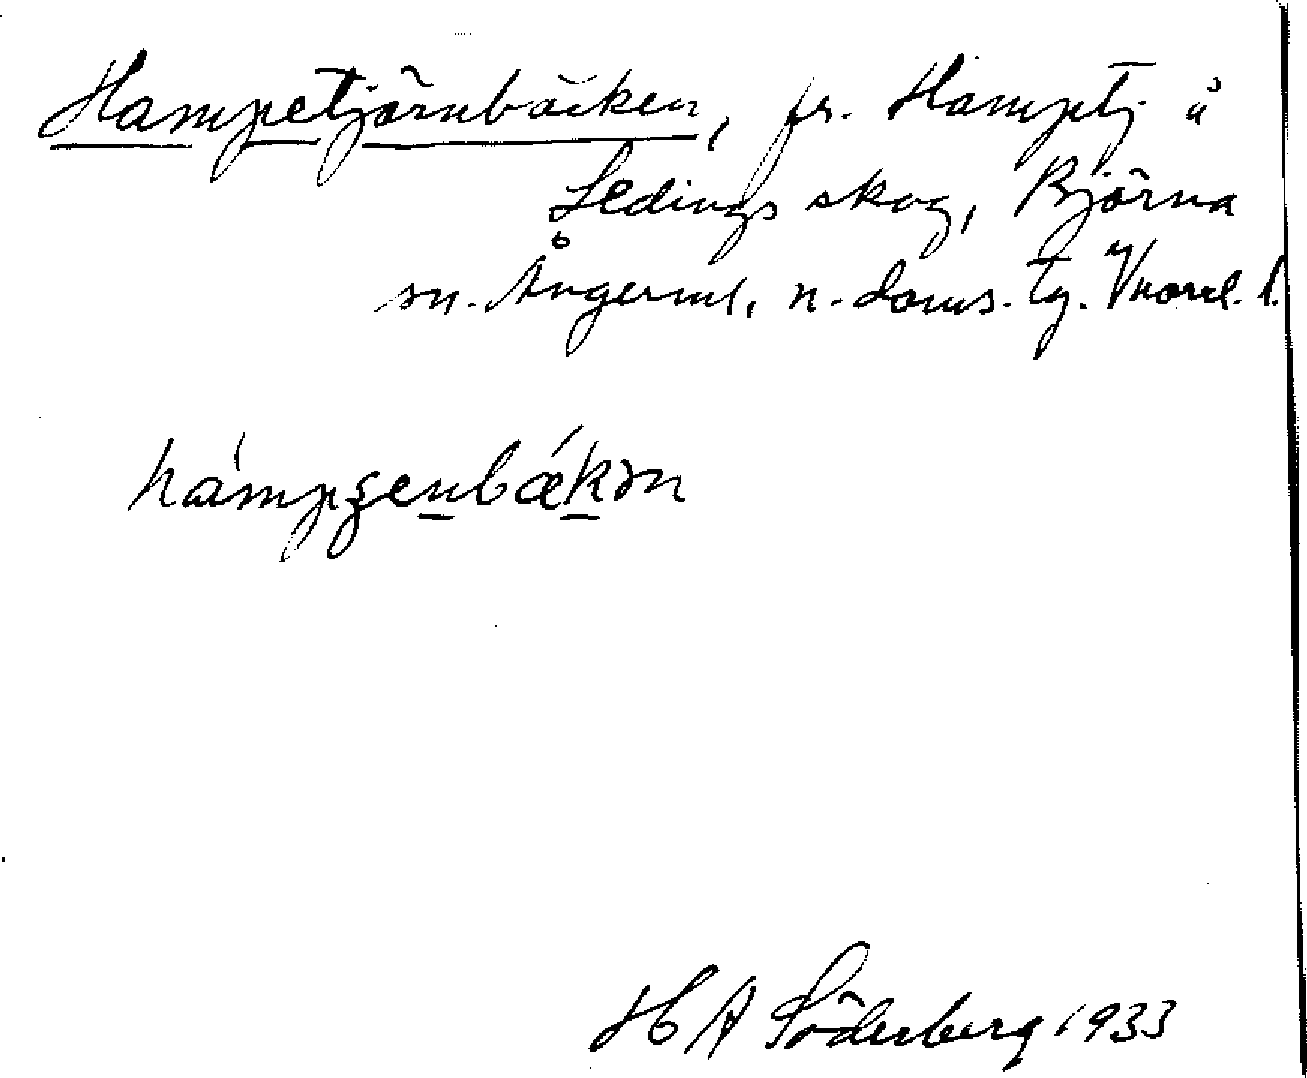 Hampetjärnbäcken, fr. Hamptj å
Ledings skog, Björna
sn. Ångerml. n. doms. tg. Vnorrl. l.
hámpʂenbǽkən
H A Söderberg 1933